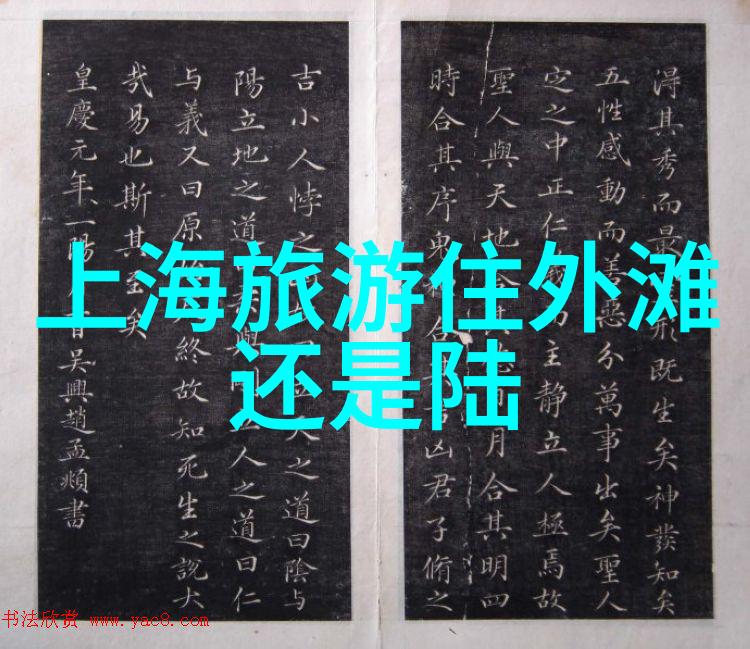 上海旅游住外滩
还是陆
得其秀而最形既生矣神發知矣
五性感動而善惡分萬事出矣聖人
定之中正仁主靜立人極焉故
聖人與天地合其月合其明四
時合其序鬼合吉凶君子脩之
吉小人悖之天之道曰陰与
陽立地之道與人之道曰仁
与義又曰原終故知死生之說大
哉易也斯其至矣
皇慶元年一陽月吳興趙孟頫書
书法欣赏 www.yac8.com